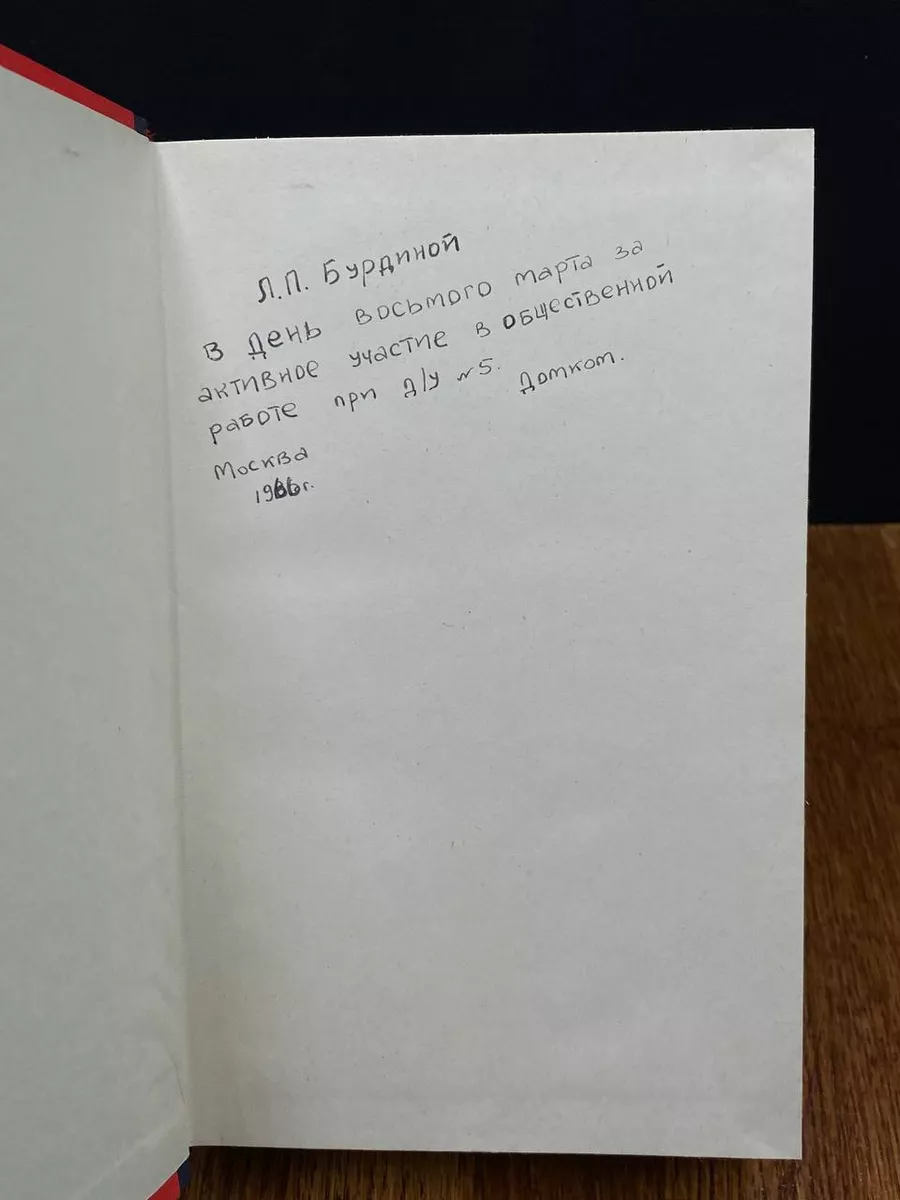 Л.П. Бурдиной
В день восьмого марта за
активное участие в общественной
работе при д/у №5.
Домком.
Москва
1966г.